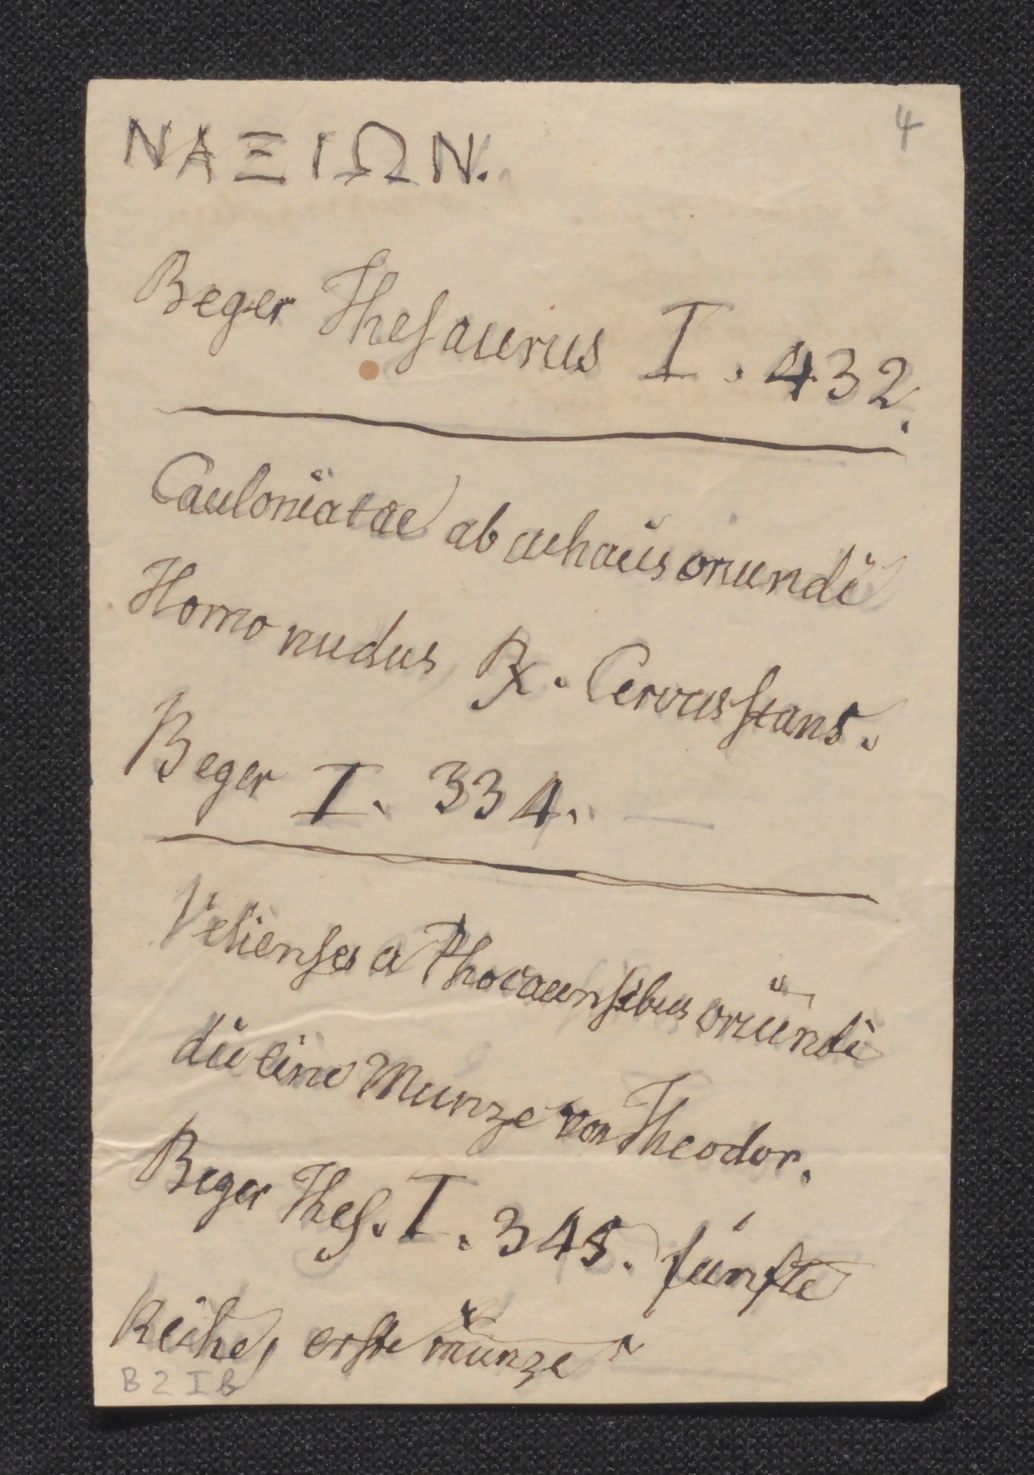 4
ΝΑΞΙΩΝ.
Beger Thesaurus I. 432.
Cauloniatae ab achaeis oriundi
Homo nudus R. Cervus stans.
Beger I. 334. —
Velienses a Phocaensibus oriundi
die eine Munze von Theodor.
Beger Thes. I. 345. fünfte
Reihe, erste münze
B 2 I B